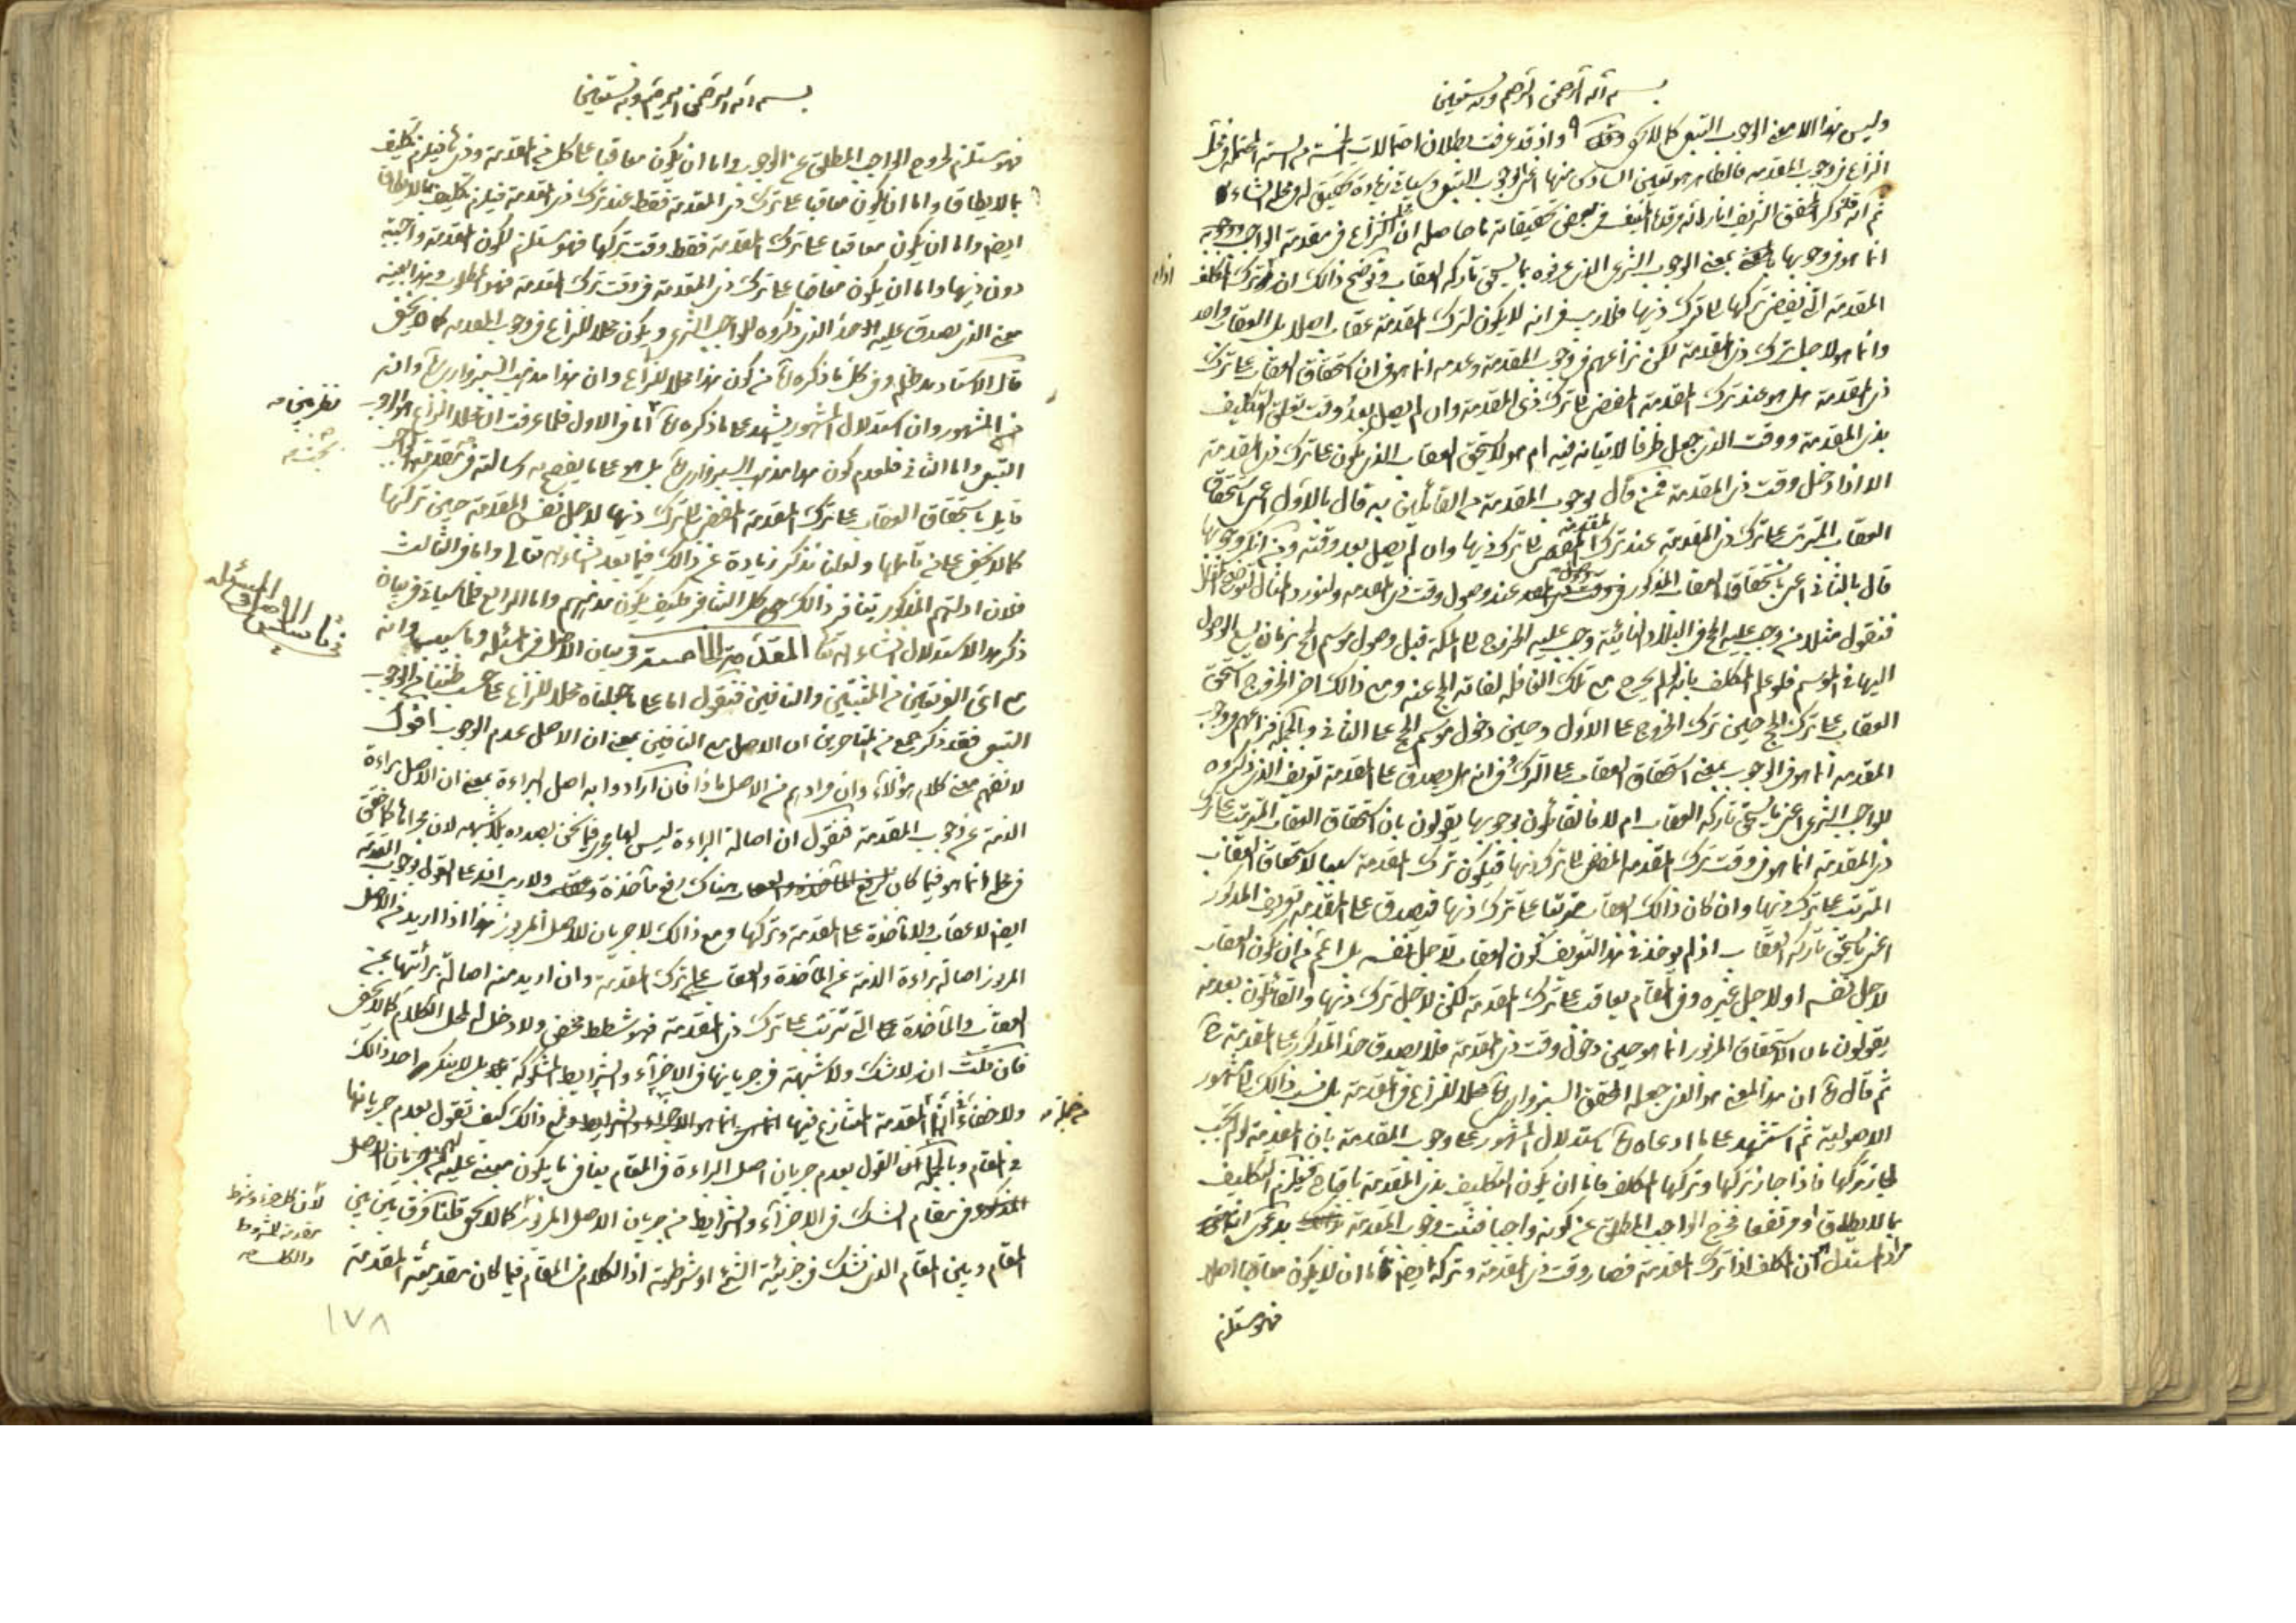 بسم الله الرحمن الرحيم وبه نستعين
وليس هذا الا معنى الوجوب التبعي كما لا يخفى واذ قد عرفت بطلان احتمالات الخمسة من الستة المحتملة في محل
النزاع في وجوب المقدمة فالظاهر هو تعين السادس منها اعني الوجوب التبعي وسيأتي زيادة تحقيق له في محله انشاء
ثم انه قد ذكر المحقق الشريف انار الله مرقده الشريف في بعض تحقيقاته ما حاصله ان محل النزاع في مقدمة الواجب ووجوبه
انما هو في وجوبها بمعنى الوجوب الشرعي الذي عرفوه بما يستحق تاركه العقاب وتوضيح ذالك ان ترك المكلف
اذا
المقدمة التي يفضي تركها الى ترك ذيها فلا ريب في انه لا يكون لترك المقدمة عقاب اصلا بل العقاب واحد
وانما هو لاجل ترك ذي المقدمة لكن نزاعهم في وجوب المقدمة وعدمه انما هو في ان استحقاق العقاب على ترك
ذي المقدمة هل هو عند ترك المقدمة المفضي الى ترك ذي المقدمة وان لم يصل بعد وقت تعلق التكليف
بذي المقدمة ووقت الذي جعل ظرفا لاتيانه فيه ام هو لا يستحق العقاب الذي يكون على ترك ذي المقدمة
الا اذا دخل وقت ذي المقدمة فمن قال بوجوب المقدمة من القائلين به قال بالاول اعني باستحقاق
العقاب المترتب على ترك ذي المقدمة عند ترك المقدمة المفضي الى ترك ذيها وان لم يصل بعد وقته ومن انكر وجوبها
قال بالثاني اعني باستحقاق العقاب المذكور في وقت عند وصول وقت ذي المقدمة ولنورد المثال لتوضيح الحال
فنقول مثلا من وجب عليه الحج في البلاد النائية وجب عليه الخروج الى المكة قبل وصول موسم الحج بزمان يسع الوصول
اليها في الموسم فلو علم المكلف بانه لم يخرج مع تلك القافلة لفاته الحج عنه ومع ذالك اخر الخروج استحق
العقاب على ترك الحج حين ترك الخروج على الاول وحين دخول موسم الحج على الثاني وبالجملة فنزاعهم في وجوب
المقدمة انما هو في الوجوب بمعنى استحقاق العقاب على الترك وفي انه هل يصدق على المقدمة تعريف الذي ذكروه
للواجب الشرعي اعني ما يستحق تاركه العقاب ام لا فالقائلون بوجوبها يقولون بان استحقاق العقاب المترتب على ترك
ذي المقدمة انما هو في وقت ترك المقدمة المفضي الى ترك ذيها فيكون ترك المقدمة سببا لاستحقاق العقاب
المترتب على ترك ذيها وان كان ذالك العقاب مترتبا على ترك ذيها فيصدق على المقدمة تعريف المذكور
اعني ما يستحق تاركه العقاب اذ لم يؤخذ في هذا التعريف كون العقاب لاجل نفسه بل اعم من ان يكون العقاب
لاجل نفسه او لاجل غيره وفي المقام يعاقب على ترك المقدمة لكن لاجل ترك ذيها والقائلون بعدمه
يقولون بان الاستحقاق المزبور انما هو حين دخول وقت ذي المقدمة فلا يصدق حد المذكور على المقدمة
ثم قال ان هذا المعنى هو الذي جعله المحقق السبزواري محلا للنزاع في المقدمة بل نسب ذالك الى المشهور
الاصولية ثم استشهد على ما ادعاه باستدلال المشهور على وجوب المقدمة بان المقدمة لو لم يجب
لجاز تركها فاذا جاز تركها وتركها المكلف فاما ان يكون التكليف بذي المقدمة باقيا فيلزم التكليف
بما لا يطاق او مرتفعا فخرج الواجب المطلق عن كونه واجبا فثبت وجوب المقدمة
استدل ان المكلف اذا ترك المقدمة فصار وقت ذي المقدمة وتركه ايضا فاما ان لا يكون معاقبا اصلا
فهو مستلزم
بسم الله الرحمن الرحيم وبه نستعين
فهو مستلزم لخروج الواجب المطلق عن الوجوب واما ان يكون معاقبا على كل من المقدمة وذي فيلزم تكليف
بما لا يطاق واما ان يكون معاقبا على ترك ذي المقدمة فقط عند ترك ذي المقدمة فيلزم تكليف بما لا يطاق
ايضا واما ان يكون معاقبا على ترك المقدمة فقط وقت تركها فهو مستلزم لكون المقدمة واجبة
دون ذيها واما ان يكون معاقبا على ترك ذي المقدمة في وقت ترك المقدمة فهو المطلوب وهذا بعينه
معنى الذي يصدق عليه الحد الذي ذكروه للواجب الشرعي ويكون محلا للنزاع في وجوب المقدمة كما لا يخفى
قال الاستاد مد ظله وفي كل ما ذكره من كون هذا محلا للنزاع وان هذا مذهب السبزواري وانه
من المشهور وان استدلال المشهور يشهد على ما ذكره اما في الاول فلما عرفت ان محل النزاع هو الوجوب
نظر من
التبعي واما الثاني فلعدم كون هذا مذهب السبزواري بل هو على ما يفصح به رسالته في مقدمة الواجب
قايل باستحقاق العقاب على ترك المقدمة المفضي الى ترك ذيها لاجل نفس المقدمة حين تركها
كما لا يخفى على من تأملها ولعلنا نذكر زيادة عن ذالك فيما بعد انشاء الله تعالى واما في الثالث
فلان ادلتهم المذكور ينافر ذالك كل التنافر فكيف يكون مذهبهم واما الرابع فلما سيأتي في بيان
ذكر هذا الاستدلال انشاء الله تعالى المقدمة الخامسة في بيان الاصل في المسئلة وتأسيسها وانه
في تأسيس الاصل في المسئلة
مع اي الفريقين من المثبتين والنافين فنقول اما على ما جعلناه محلا للنزاع على حسب ظننا من الوجوب
التبعي فقد ذكر جمع من المتاخرين ان الاصل مع النافين بمعنى ان الاصل عدم الوجوب اقول
لا نفهم معنى كلام هؤلاء وان مرادهم من الاصل ماذا فان ارادوا به اصل البراءة بمعنى ان الاصل براءة
الذمة عن وجوب المقدمة فنقول ان اصالة البراءة ليس لها مجرى فيما نحن بصدده بلا شبهه لان مجراها كما حقق
في محله انما هو فيما كان هناك رفع مأخذة ولا ريب ان على القول بوجوب المقدمة
ايضا لا عقاب ولا مأخذة على المقدمة وتركها ومع ذالك لا جريان للاصل المزبور هذا اذا اريد من الاصل
المزبور اصالة براءة الذمة عن المأخذة والعقاب على ترك المقدمة وان اريد منه اصالة برائتها عن
العقاب والمأخذة التي تترتب على ترك ذي المقدمة فهو شطط محض ولا دخل له لمحل الكلام كما لا يخفى
فان قلت انه لا شك ولا شبهة في جريانها في الاجزاء والشرايط المشكوكة بل لا ينكره احد ذالك
ولا خفاء في ان المقدمة المتنازع فيها انما هو الاجزاء والشرايط ومع ذالك كيف تقول بعدم جريانها
من جملة
في المقام وبالجملة ان القول بعدم جريان اصل البراءة في المقام ينافي ما يكون مبني عليه من جريان الاصل
في مقام الشك في الاجزاء والشرايط من جريان الاصل المزبور كما لا يخفى قلنا فرق بين بين
لأن كل جزء وشرط
مقدمة للمشروط
والكل
المقام وبين المقام الذي نشك في جزئية الشيء او شرطيته اذ الكلام في المقام فيما كان مقدميته المقدمة
١٧٨